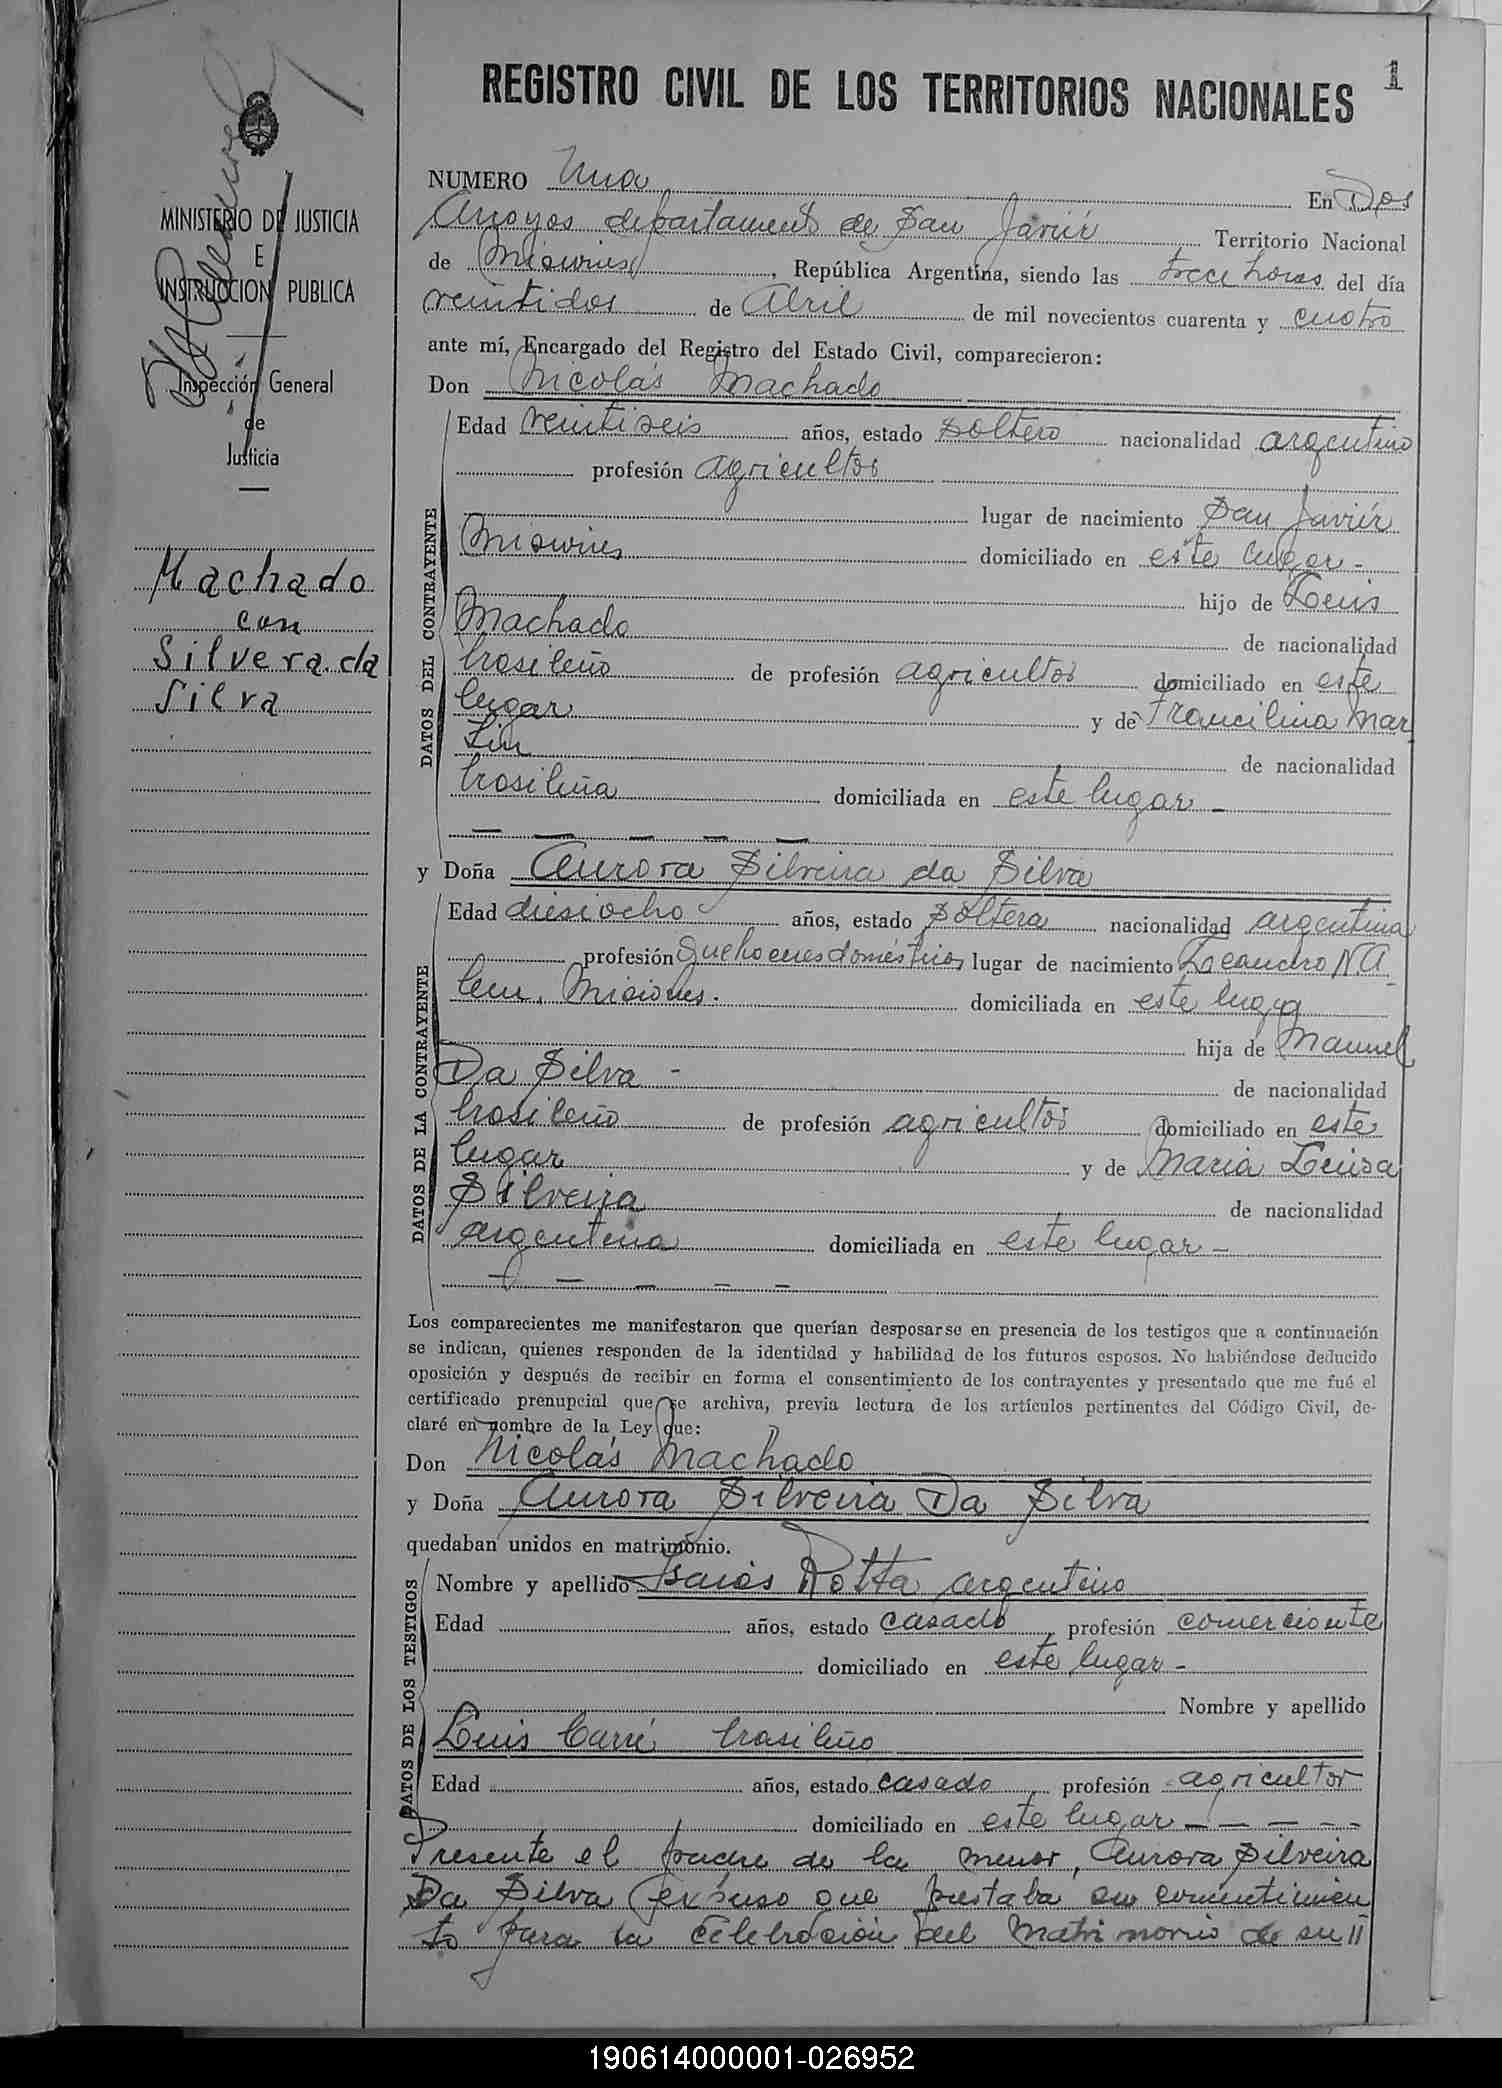 1
REGISTRO CIVIL DE LOS TERRITORIOS NACIONALES
MINISTERIO DE JUSTICIA
E
INSTRUCCION PUBLICA
Inspección General
de
Justicia
Machado
con
Silvera da
Silva
NUMERO Una En Dos
Arroyos departamento de San Javiér Territorio Nacional
de Misiones, República Argentina, siendo las trece horas del día
veintidos de Abril de mil novecientos cuarenta y cuatro
ante mí, Encargado del Registro del Estado Civil, comparecieron:
Don Nicolás Machado
DATOS DEL CONTRAYENTE
Edad veintiseis años, estado soltero nacionalidad argentino
profesión agricultor
lugar de nacimiento San Javiér
Misiones domiciliado en este lugar -
hijo de Luis
Machado de nacionalidad
brasileño de profesión agricultor domiciliado en este
lugar y de Francilina Mar
tin de nacionalidad
brasileña domiciliada en este lugar -
y Doña Aurora Silveira da Silva
DATOS DE LA CONTRAYENTE
Edad diesiocho años, estado soltera nacionalidad argentina
profesión quehaceres domésticos lugar de nacimiento Leandro N A
lem, Misiones. domiciliada en este lugar
hija de Manuel
Da Silva - de nacionalidad
brasileño de profesión agricultor domiciliado en este
lugar y de Maria Luisa
Silveira de nacionalidad
argentina domiciliada en este lugar -
Los comparecientes me manifestaron que querían desposarse en presencia de los testigos que a continuación
se indican, quienes responden de la identidad y habilidad de los futuros esposos. No habiéndose deducido
oposición y después de recibir en forma el consentimiento de los contrayentes y presentado que me fué el
certificado prenupcial que se archiva, previa lectura de los artículos pertinentes del Código Civil, de-
claré en nombre de la Ley que:
Don Nicolás Machado
y Doña Aurora Silveira Da Silva
quedaban unidos en matrimonio.
DATOS DE LOS TESTIGOS
Nombre y apellido Isaias Rotta argentino
Edad años, estado casado, profesión comerciante
domiciliado en este lugar -
Nombre y apellido
Luis Carré brasileño
Edad años, estado casado profesión agricultor
domiciliado en este lugar - - - - -
Presente el padre de la menor, Aurora Silveira
Da Silva expuso que prestaba su consentimien
to para la celebración del Matrimonio de su II
190614000001-026952